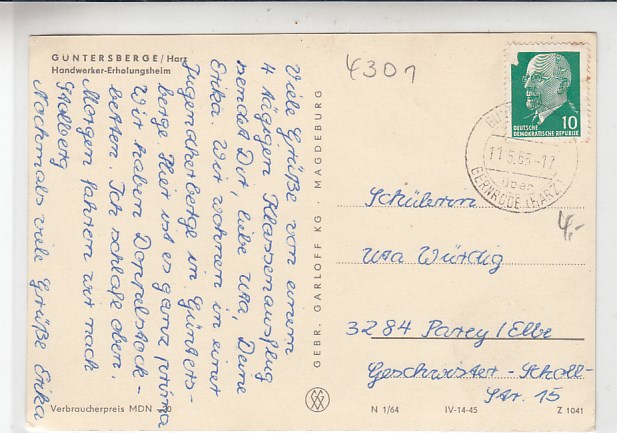 GÜNTERSBERGE / Harz
Handwerker-Erholungsheim
Viele Grüße von einem
4 tägigen Klassenausflug
sendet Dir, liebe Uta, Deine
Erika. Wir wohnen in einer
Jugendherberge in Günters-
berge. Hier ist es ganz prima
Wir haben Doppelstock-
betten. Ich schlafe oben.
Morgen fahren wir nach
Stolberg
Nochmals viele Grüße Erika
Verbraucherpreis MDN
GEBR. GARLOFF KG · MAGDEBURG
4301
10
DEUTSCHE
DEMOKRATISCHE REPUBLIK
11.5.65-17
über
GERNRODE (HARZ)
4,-
Schülerin
Uta Würdig
3284 Parey/Elbe
Geschwister-Scholl-
Str. 15
N 1/64 IV-14-45 Z 1041